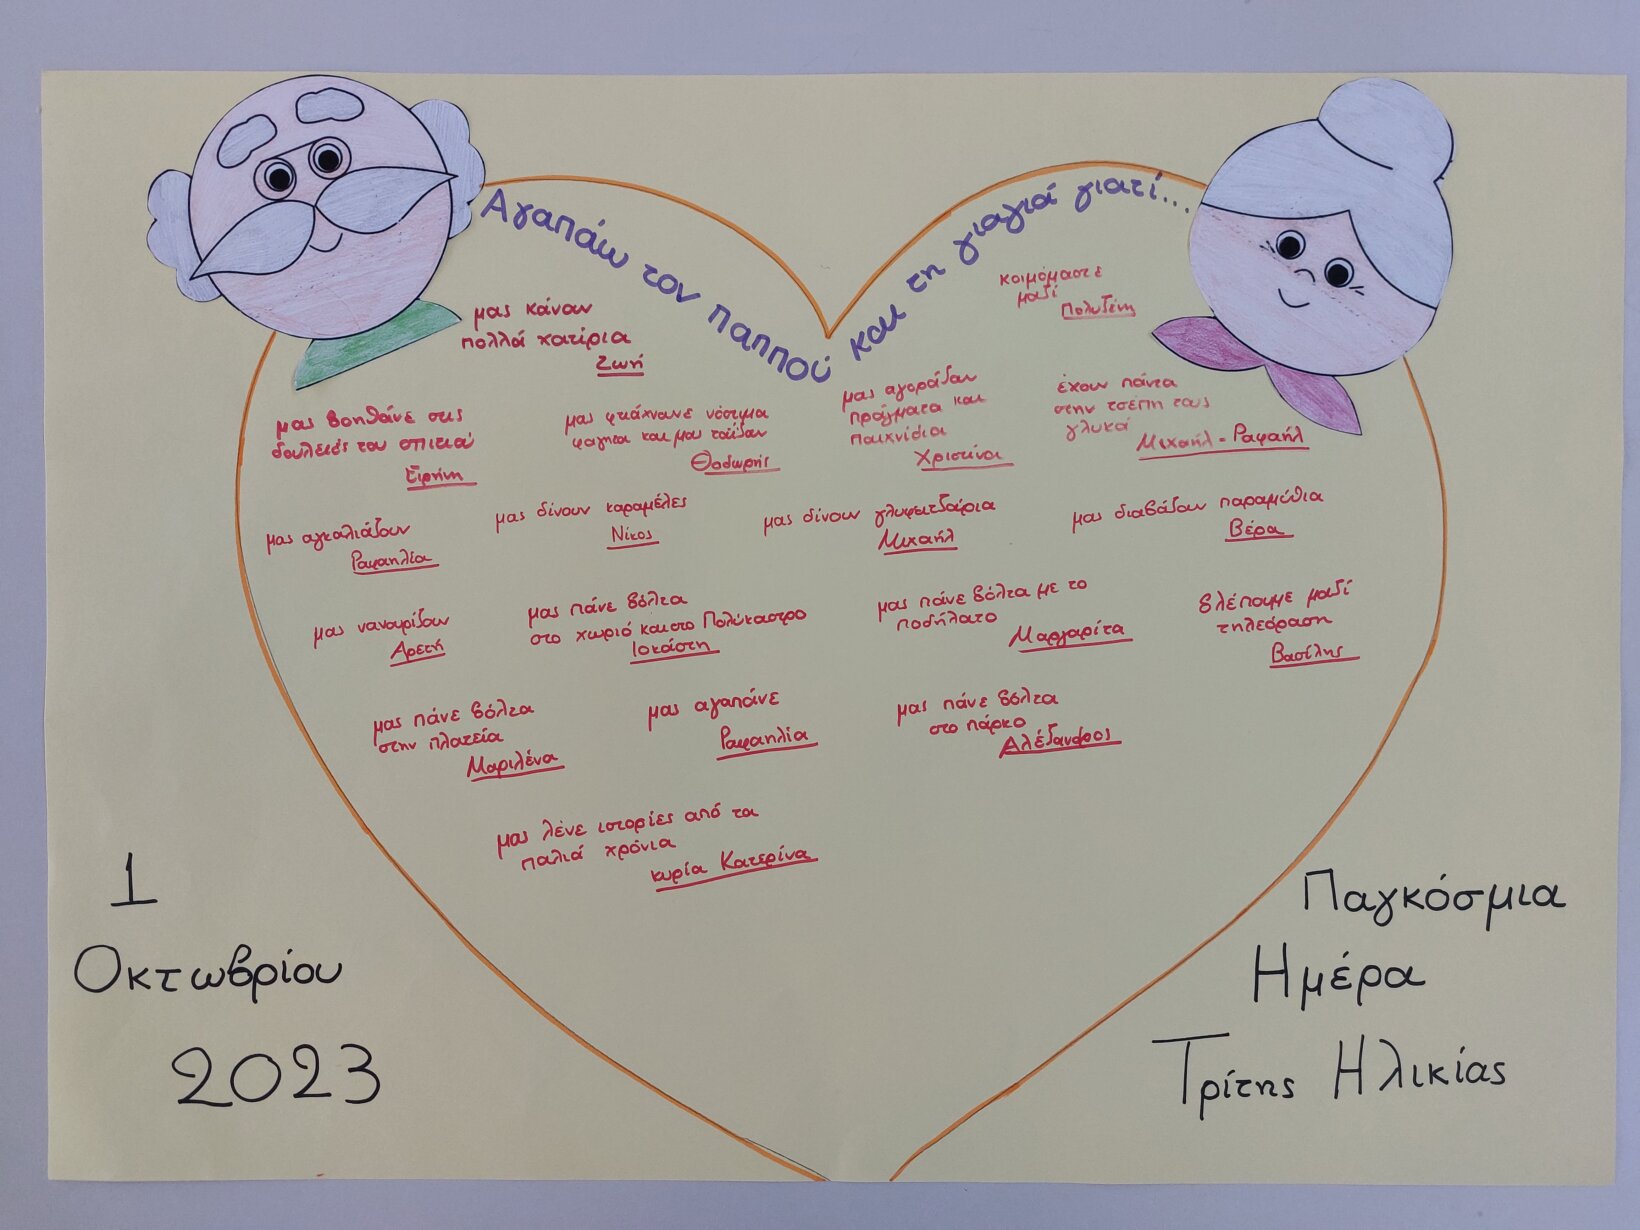 Αγαπάω τον παππού και τη γιαγιά γιατί...
κοιμόμαστε
μαζί
Πολυξένη
μας κάνουν
πολλά χατίρια
Ζωή
μας βοηθάνε στις
δουλειές του σπιτιού
Ειρήνη
μας φτιάχνουνε νόστιμα
φαγητά και μου ταΐζουν
Θοδωρής
μας αγοράζουν
πράγματα και
παιχνίδια
Χριστίνα
έχουν πάντα
στην τσέπη τους
γλυκά
Μιχαήλ - Ραφαήλ
μας αγκαλιάζουν
Ραφαηλία
μας δίνουν καραμέλες
Νίκος
μας δίνουν γλυφιτζούρια
Μιχαήλ
μας διαβάζουν παραμύθια
Βέρα
μας νανουρίζουν
Αρετή
μας πάνε βόλτα
στο χωριό και στο Πολύκαστρο
Ιοκάστη
μας πάνε βόλτα με το
ποδήλατο
Μαργαρίτα
βλέπουμε μαζί
τηλεόραση
Βασίλης
μας πάνε βόλτα
στην πλατεία
Μαριλένα
μας αγαπάνε
Ραφαηλία
μας πάνε βόλτα
στο πάρκο
Αλέξανδρος
μας λένε ιστορίες από τα
παλιά χρόνια
κυρία Κατερίνα
1
Οκτωβρίου
2023
Παγκόσμια
Ημέρα
Τρίτης Ηλικίας